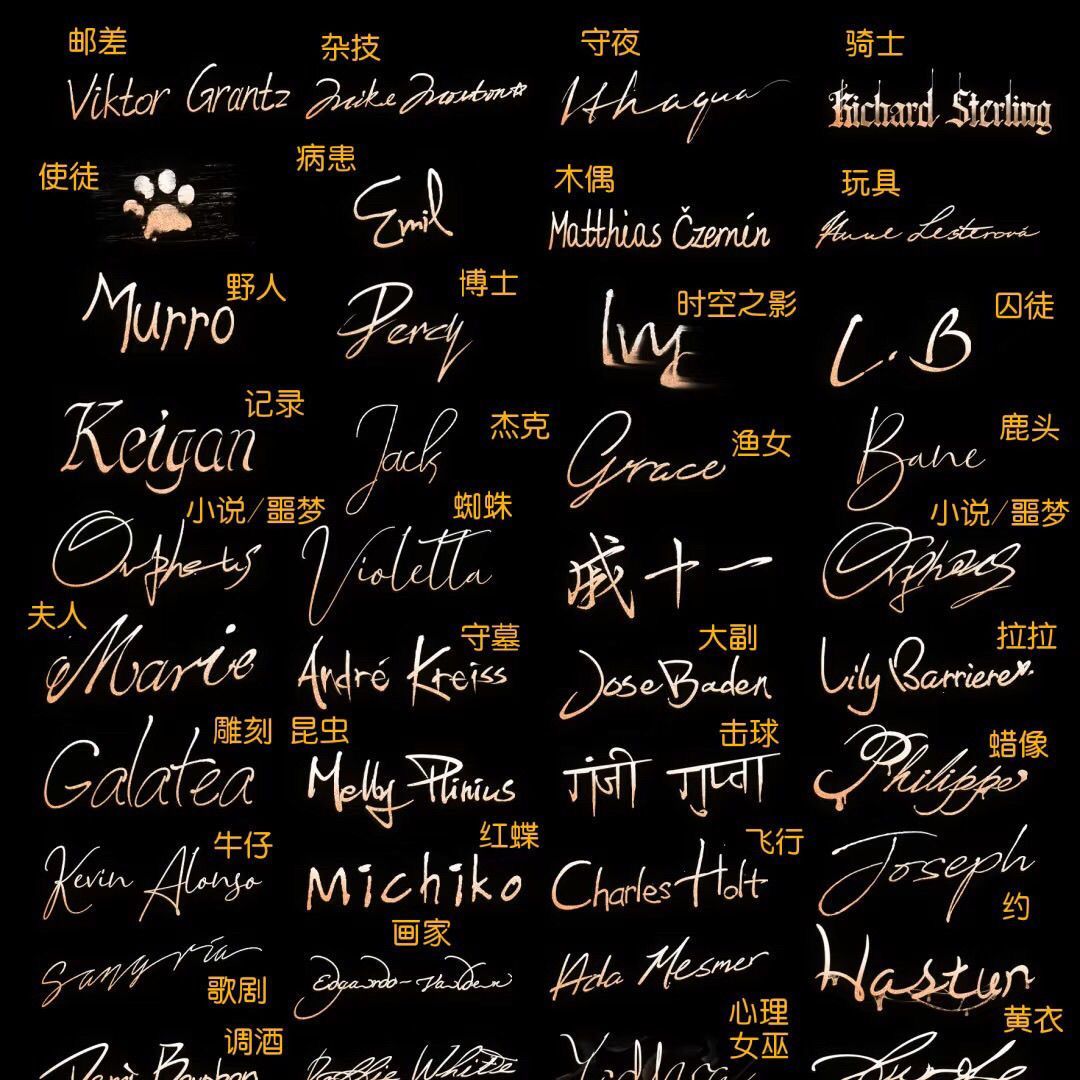 邮差
杂技
守夜
骑士
Viktor Grantz
Mike Morton
Ithaqua
Richard Sterling
使徒
病患
木偶
玩具
Emil
Matthias Czernín
Anne Lesterová
野人
博士
时空之影
囚徒
Murro
Percy
Ivy
L.B
记录
杰克
渔女
鹿头
Keigan
Jack
Grace
Bane
小说/噩梦
蜘蛛
小说/噩梦
Orpheus
Violetta
戚十一
Orpheus
夫人
守墓
大副
拉拉
Marie
André Kreiss
Jose Baden
Lily Barriere
雕刻
昆虫
击球
蜡像
Galatea
Melly Plinius
गंजी गुप्ता
Philippe
牛仔
红蝶
飞行
约
Kevin Alonso
Michiko
Charles Holt
Joseph
歌剧
画家
心理
黄衣
Sangria
Edgardo-Valden
Ada Mesmer
Hastur
调酒
女巫
Demi Bourbon